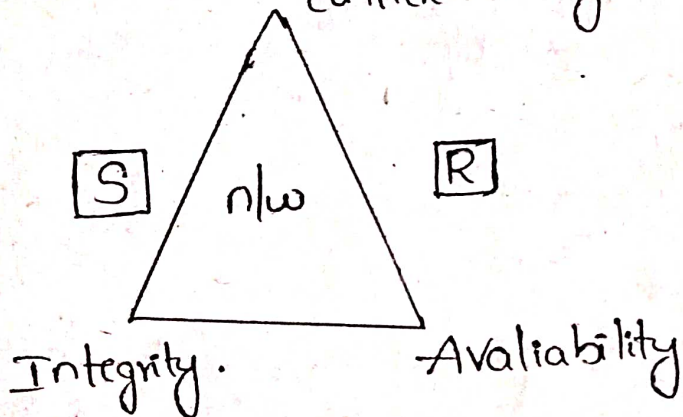 S
n/w
R
Integrity.
Avaliability